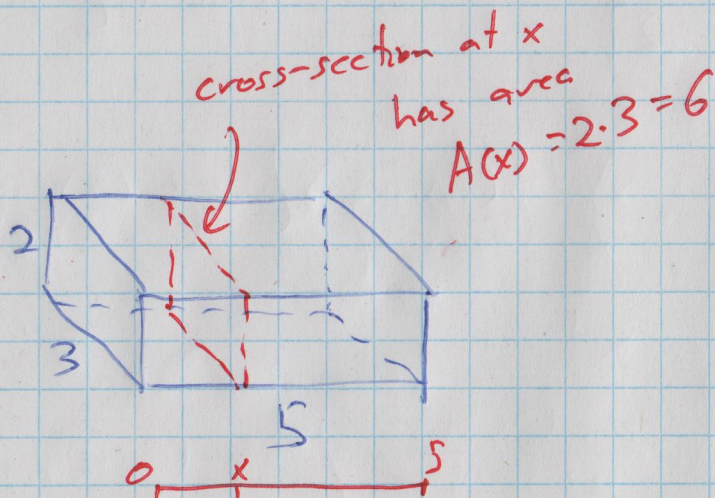 cross-section at x
has area
A(x) = 2·3 = 6
2
3
5
0 x 5